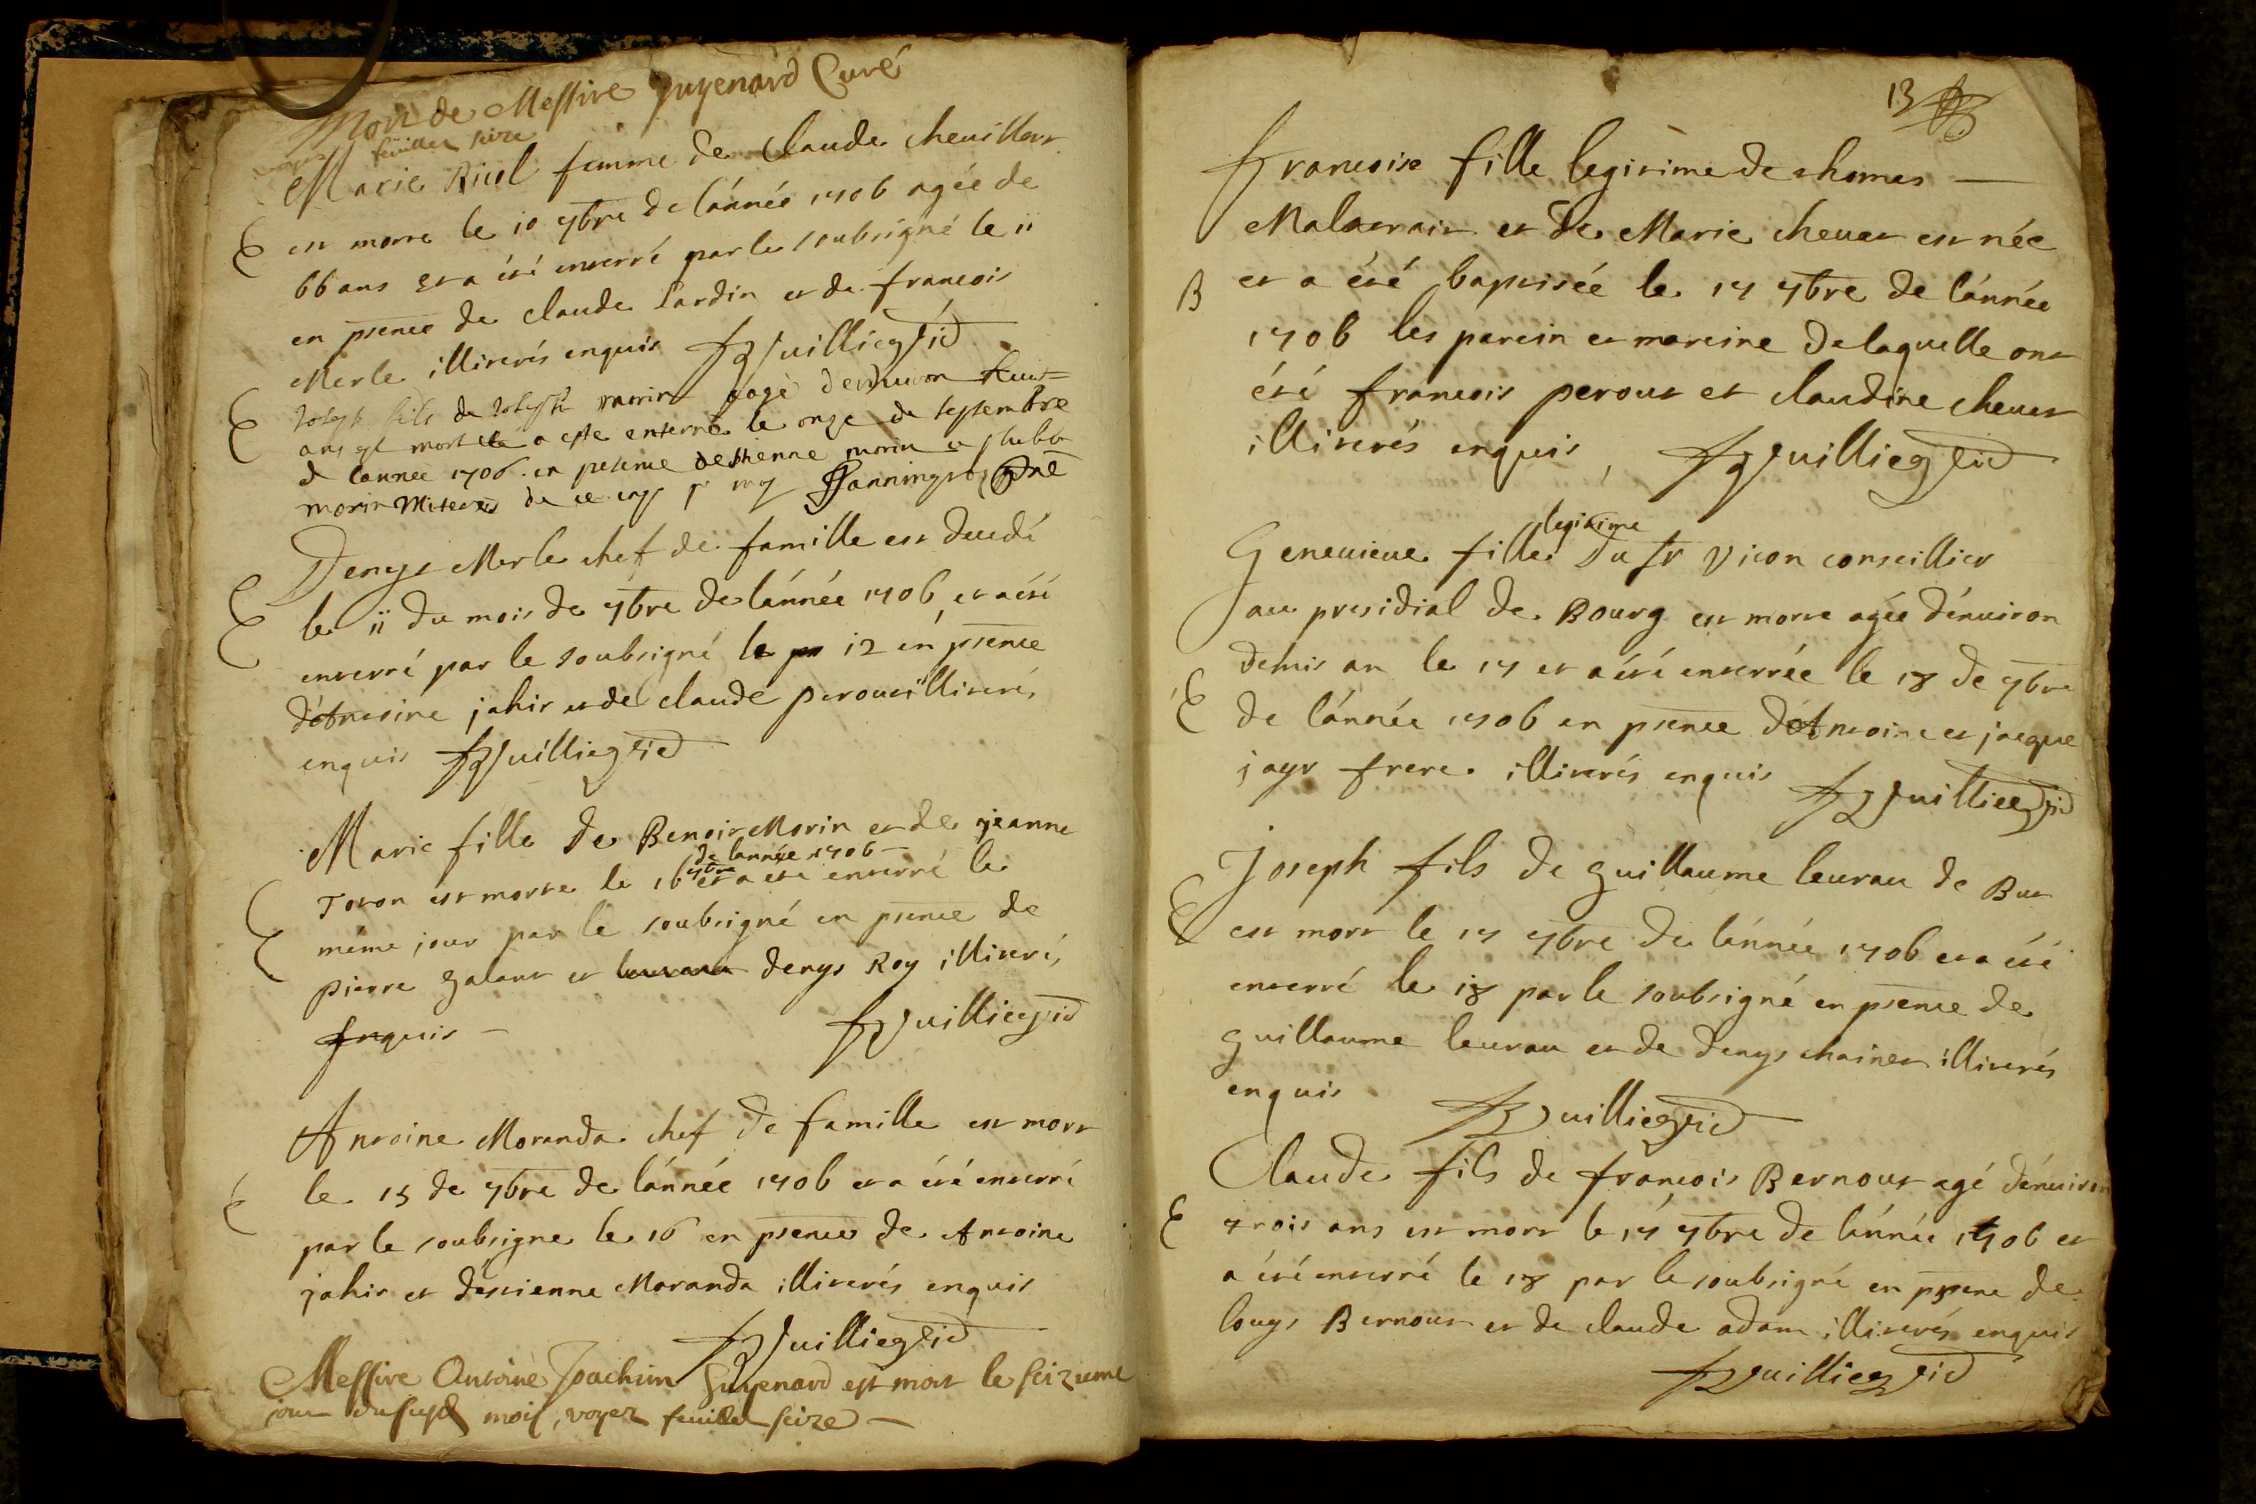 Mort de Messire Guyenard Curé
voyez feuillet seize
Marie Ricol femme de Claude cheuillout
E est morte le 10 7bre de lánnée 1706 agée de
66 ans et a été enterré par le soubsigné le 11
en psence de claude Lardin et de francois
Merle illiterés enquis Vuillieg vic
E Joseph fils de Joseph morin aagé denuiron huit
ans est mort et a este enterré le onze de septembre
de lannee 1706 en presence destienne morin et
morin illiteres de ce enq
Denys Merle chef de famille est decedé
E le 11 du mois de 7bre de lánnée 1706 et a été
enterré par le soubsigné le 12 en psence
dAntoine jahir et de claude perout illiterés
enquis Vuillieg vic
Marie fille de Benoit Morin et de jeanne
de lannée 1706
E Toton est morte le 16 7bre et a été enterré le
méme jour par le soubsigné en psence de
pierre galant et denys Roy illiterés
Enquis Vuillieg vic
Antoine Moranda chef de famille est mort
E le 15 de 7bre de lánnée 1706 et a été enterré
par le soubsigne le 16 en psence de Antoine
jahir et destienne Moranda illiterés enquis
Vuillieg vic
Messire Antoine Joachim Guyenard est mort le seizieme
jour dususd mois, voyez feuillet seize
13
francoise fille legitime de thomas
Malatrait et de Marie cheuat est née
B et a été baptisée le 17 7bre de lánnée
1706 les parein et mareine de laquelle ont
été francois perout et claudine cheuat
illiterés enquis, Vuillieg vic
legitime
Geneuieue fille du sr Vicon conseillier
au presidial de Bourg est morte agée dénuiron
demis an le 17 et a été enterrée le 18 de 7bre
E de lánnée 1706 en psence dAntoine et jacque
jayr frere illiterés enquis Vuillieg vic
Joseph fils de guillaume leurau de Bur
E est mort le 17 7bre de lánnée 1706 et a été
enterré le 18 par le soubsigné en psence de
guillaume leurau et de denys chainet illiterés
enquis Vuillieg vic
Claude fils de francois Bernout agé dénuiron
E trois ans est mort le 17 7bre de lánnée 1706 et
a été enterré le 18 par le soubsigné en psence de
louys Bernout et de claude adam illiterés enquis
Vuillieg vic